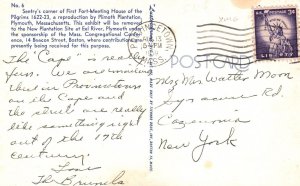 No. 6
Sentry's corner of First Fort-Meeting House of the
Pilgrims 1622-23, a reproduction by Plimoth Plantation,
Plymouth, Massachusetts. This exhibit will be removed
to the New Plantation Site at Eel River, Plymouth under
the sponsorship of the Mass. Congregational Conference,
14 Beacon Street, Boston, where contributions are
presently being received for this purpose.
The "Cape" is really
fun. We are
then in Provincetown
on the Cape and
the street are really
like something right
out of the 17th
century.
Love
The
PROVINCETOWN
MASS.
3¢
POSTCARD
Mrs Walter Moon
Syracuse Rd.
Cazenovia
New York